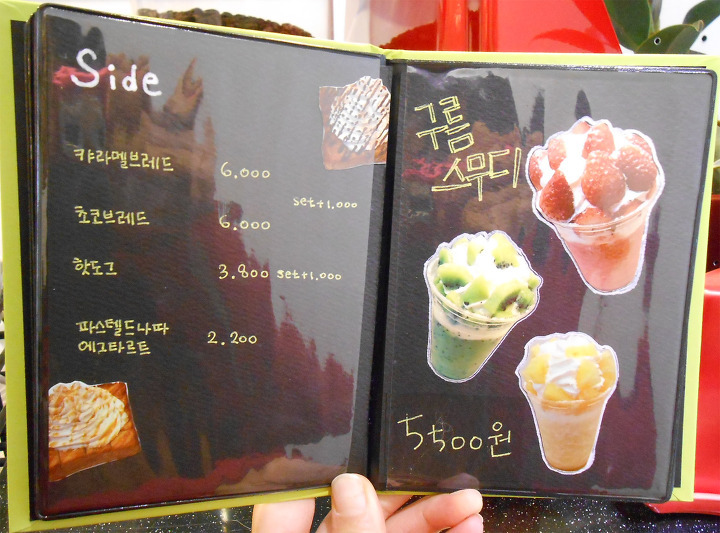 Side
캬라멜브레드 6,000
set+1,000
초코브레드 6,000
핫도그 3.800 set+1,000
파스텔드나따
에그타르트 2.200
구름
스무디
5500원